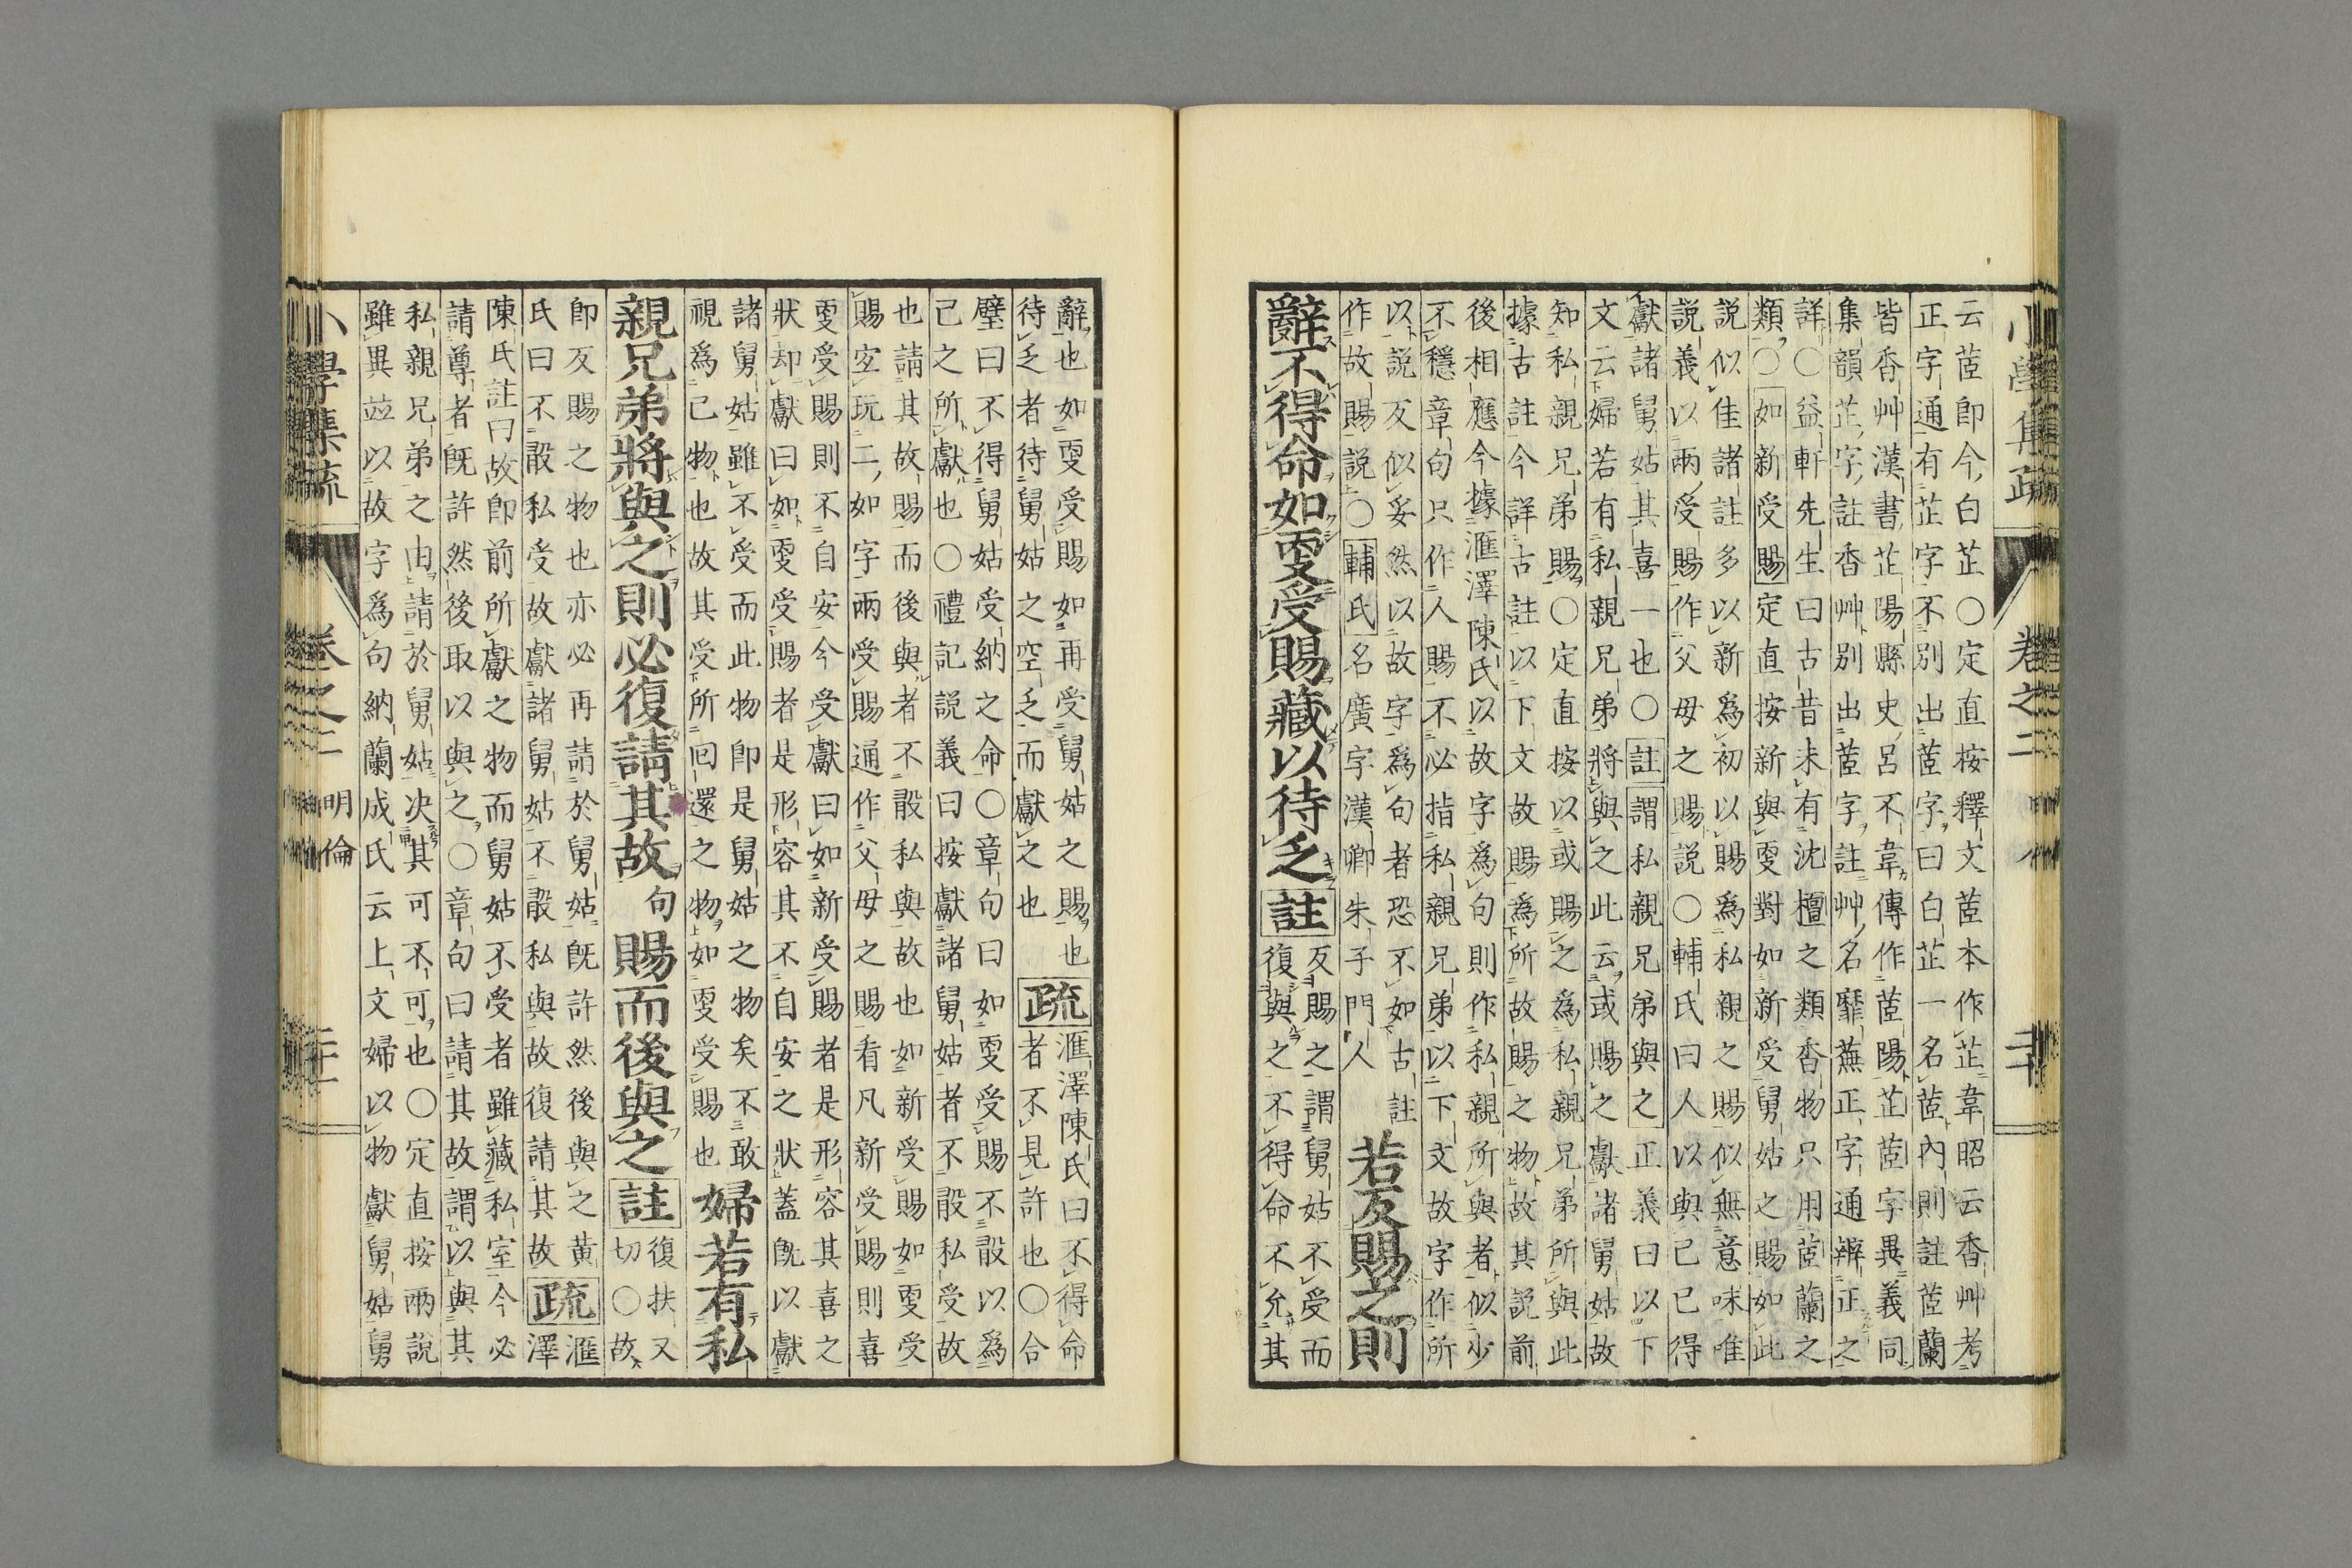 云茝卽今白芷〇定直按釋文茝本作芷韋昭云香艸考
正字通有芷字不別出茝字曰白芷一名茝內則註茝蘭
皆香艸漢書芷陽縣史呂不韋傳作茝陽芷茝字異義同
集韻芷字註香艸別出茝字註艸名蘼蕪正字通辨正之
詳〇益軒先生曰古昔未有沈檀之類香物只用茝蘭之
類〇如新受賜定直按新與更對如新受舅姑之賜如此
説似佳諸註多以新爲初以賜爲私親之賜似無意味唯
説義以兩受賜作父母之賜説〇輔氏曰人以與己已得
獻諸舅姑其喜一也〇註謂私親兄弟與之正義曰以下
文云婦若有私親兄弟將與之此云或賜之獻諸舅姑故
知私親兄弟賜〇定直按以或賜之爲私親兄弟所與此
據古註今詳古註以下文故賜爲所故賜之物故其説前
後相應今據滙澤陳氏以故字爲句則作私親所與者似少
不穩章句只作人賜不必指私親兄弟以下文故字作所
以説反似妥然以故字爲句者恐不如古註
作故賜説〇輔氏名廣字漢卿朱子門人
若反賜之則
辭不得命如更受賜藏以待乏
註
反賜之謂舅姑不受而
復與之不得命不允其
小學集疏
卷之二
二十
辭也如更受賜如再受舅姑之賜也
待乏者待舅姑之空乏而獻之也
疏
滙澤陳氏曰不得命
者不見許也〇合
璧曰不得舅姑受納之命〇章句曰如更受賜不敢以爲
己之所獻也〇禮記説義曰按獻諸舅姑者不敢私受故
也請其故賜而後與者不敢私與故也如新受賜如更受
賜空玩二如字兩受賜通作父母之賜看凡新受賜則喜
更受賜則不自安今受獻曰如新受賜者是形容其喜之
狀却獻曰如更受賜者是形容其不自安之狀蓋旣以獻
諸舅姑雖不受而此物卽是舅姑之物矣不敢
視爲己物也故其受所囘還之物如更受賜也
婦若有私
親兄弟將與之則必復請其故句賜而後與之
註
復扶又
切〇故
卽反賜之物也亦必再請於舅姑旣許然後與之黃
氏曰不敢私受故獻諸舅姑不敢私與故復請其故
疏
滙
澤
陳氏註曰故卽前所獻之物而舅姑不受者雖藏私室今必
請尊者旣許然後取以與之〇章句曰請其故謂以與其
私親兄弟之由請於舅姑决其可不可也〇定直按兩説
雖異竝以故字爲句納蘭成氏云上文婦以物獻舅姑舅
小學集疏
卷之二
明倫